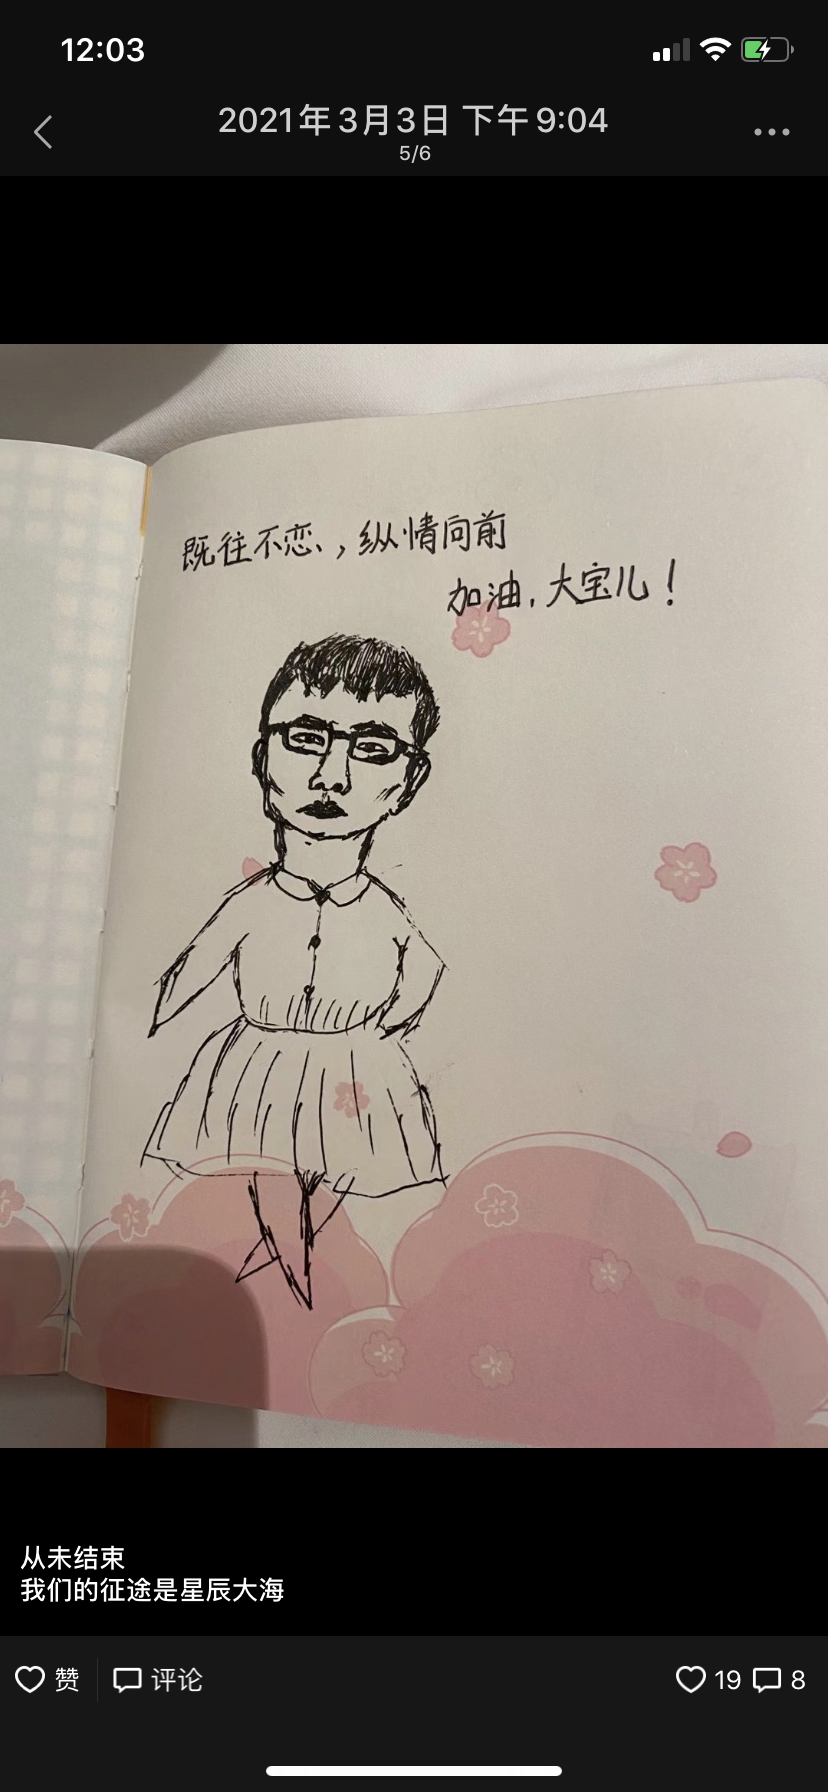 12:03
2021年3月3日 下午9:04
5/6
既往不恋、，纵情向前
加油，大宝儿！
从未结束
我们的征途是星辰大海
赞 评论 19 8